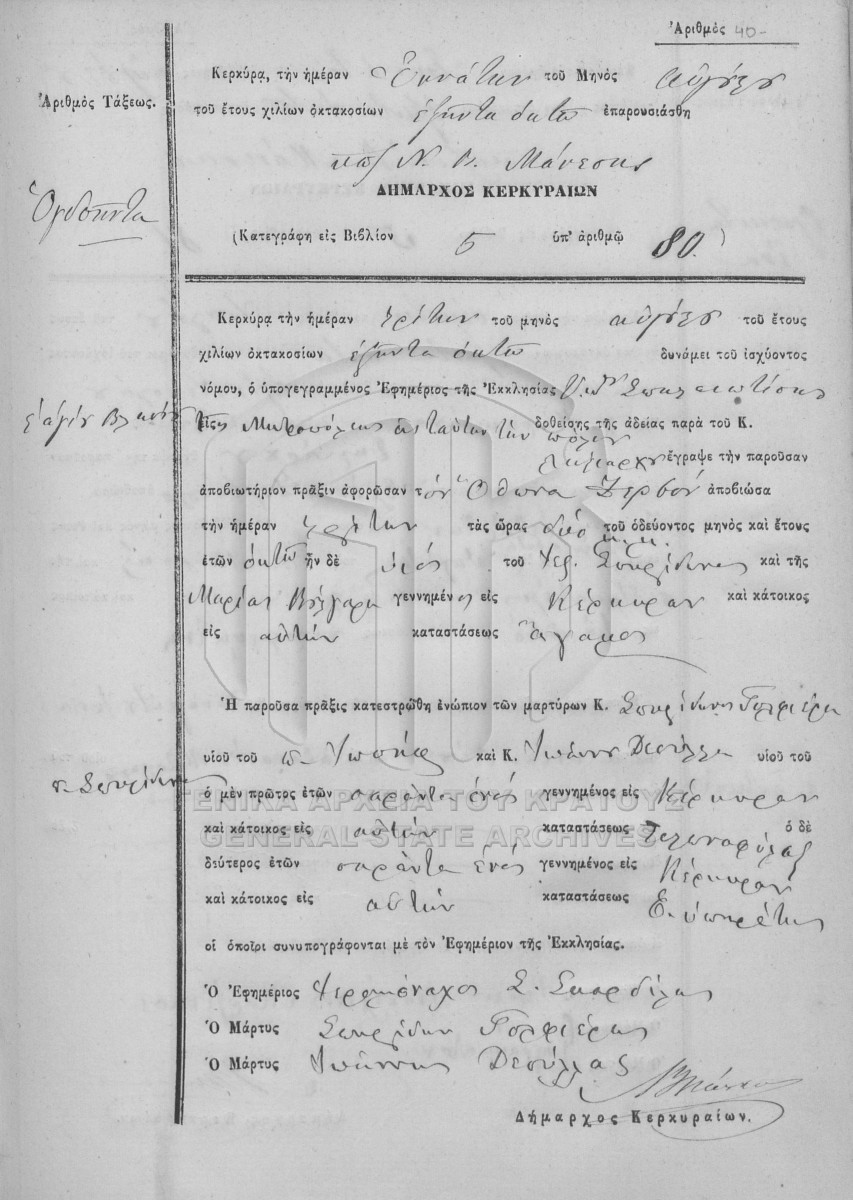 Ἀριθμὸς 40
Κερκύρα, τὴν ἡμέραν Ἐννάτην τοῦ Μηνὸς αὐγούστου
Ἀριθμὸς Τάξεως.
τοῦ ἔτους χιλίων ὀκτακοσίων ἑξῆντα ὀκτὼ ἐπαρουσιάσθη
Ν. Β. Μάνεσης
ΔΗΜΑΡΧΟΣ ΚΕΡΚΥΡΑΙΩΝ
Ὀγδοῆντα
(Κατεγράφη εἰς Βιβλίον 5 ὑπ' ἀριθμῷ 80.)
Κερκύρᾳ τὴν ἡμέραν τρίτην τοῦ μηνὸς αὐγούστου τοῦ ἔτους
χιλίων ὀκτακοσίων ἑξῆντα ὀκτὼ δυνάμει τοῦ ἰσχύοντος
νόμου, ὁ ὑπογεγραμμένος Ἐφημέριος τῆς Ἐκκλησίας Σπηλαιωτίσσης
τῆς Μητροπόλεως εἰς ταύτην τὴν πόλιν δοθείσης τῆς ἀδείας παρὰ τοῦ Κ.
Δημάρχου ἔγραψε τὴν παροῦσαν
ἀποβιωτήριον πρᾶξιν ἀφορῶσαν τὸν Ὄθωνα Ζερβὸν ἀποβιώσα
τὴν ἡμέραν τρίτην τὰς ὥρας δύο τοῦ ὁδεύοντος μηνὸς καὶ ἔτους
ἐτῶν ὀκτὼ ἦν δὲ υἱὸς τοῦ Σπυρίδωνος καὶ τῆς
Μαρίας Βούλγαρη γεννημένος εἰς Κέρκυραν καὶ κάτοικος
εἰς αὐτὴν καταστάσεως ἄγαμος
Ἡ παροῦσα πρᾶξις κατεστρώθη ἐνώπιον τῶν μαρτύρων Κ. Σπυρίδωνος Γολφιέρη
υἱοῦ τοῦ Ἰωσὴφ καὶ Κ. Ἰωάννου Δεσύλλα υἱοῦ τοῦ
Σπυρίδωνος
ὁ μὲν πρῶτος ἐτῶν σαράντα ἑνὸς γεννημένος εἰς Κέρκυραν
καὶ κάτοικος εἰς αὐτὴν καταστάσεως Τελωνοφύλαξ ὁ δὲ
δεύτερος ἐτῶν σαράντα ἑνὸς γεννημένος εἰς Κέρκυραν
καὶ κάτοικος εἰς αὐτὴν καταστάσεως ὑπηρέτης
οἱ ὁποῖοι συνυπογράφονται μὲ τὸν Ἐφημέριον τῆς Ἐκκλησίας.
Ὁ Ἐφημέριος Ἱερομόναχος Σ. Σκορδίλης
Ὁ Μάρτυς Σπυρίδων Γολφιέρης
Ὁ Μάρτυς Ἰωάννης Δεσύλλας
Δήμαρχος Κερκυραίων.
ΓΕΝΙΚΑ ΑΡΧΕΙΑ ΤΟΥ ΚΡΑΤΟΥΣ
GENERAL STATE ARCHIVES